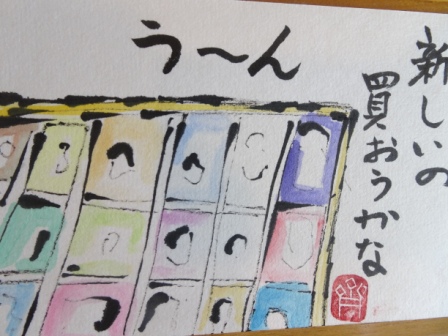 う〜ん
新しいの
買おうかな